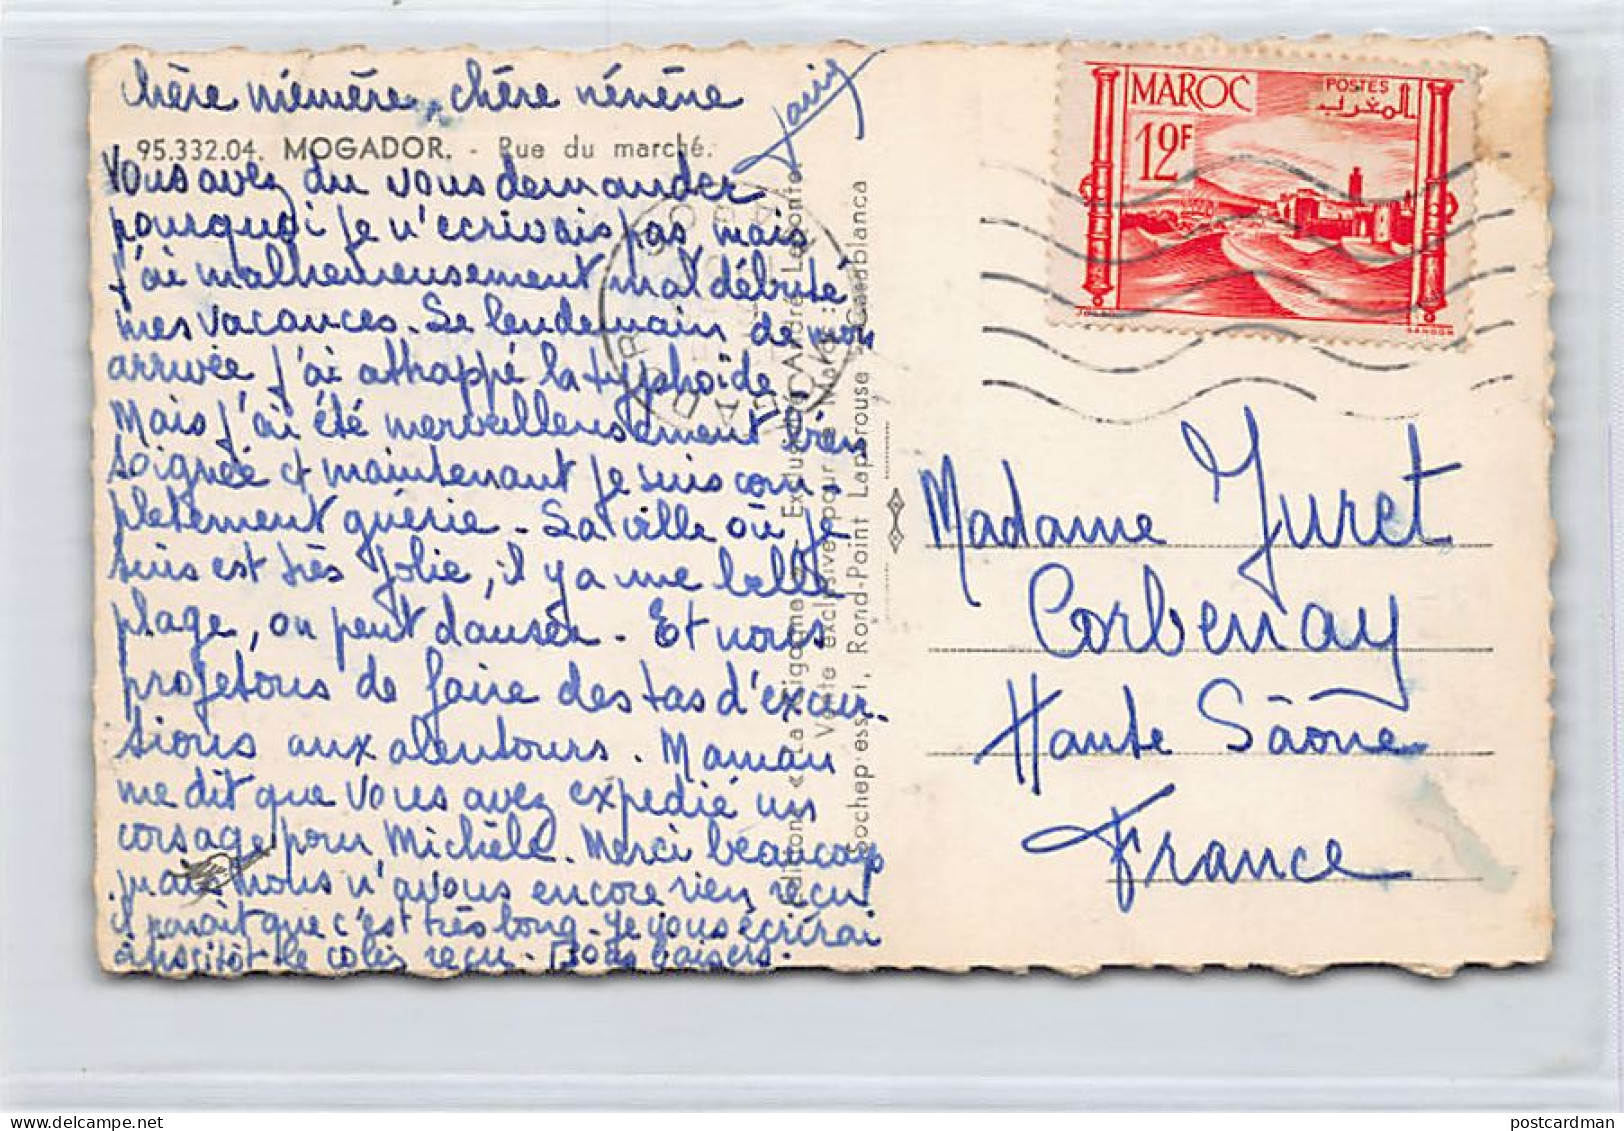 Chère Mémère chère nénène
95.332.04. MOGADOR. - Rue du marché.
Vous avez du vous demander
pourquoi je n'ecrivais pas, mais
j'ai malheureusement mal débuté
mes vacances. Le lendemain de mon
arrivée j'ai attrappé la typhoïde.
Mais j'ai été merveilleusement bien
soignée et maintenant je suis com-
pletement guérie. La ville où je
suis est très jolie, il y a une belle
plage, on peut danser. Et nous
projetons de faire des tas d'excur-
sions aux alentours. Maman
me dit que vous avez expédié un
corsage pour Michèle. Merci beaucoup
mais nous n'avons encore rien reçu
il parait que c'est très long. Je vous écrirai
aussitôt le colis reçu. Bons baisers.
Editions « La Cigogne » - Exclusivité André Leconte.
Vente exclusive pour le Maroc :
Sochepress, Rond-Point Lapérouse - Casablanca
MAROC
POSTES
المغرب
12F
GANDON
Madame Juret
Corbenay
Haute Sâone
France
postcardman